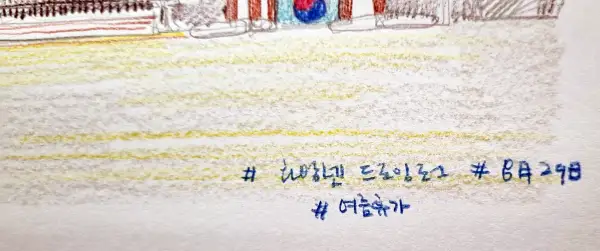 # 화방넷 드로잉로그 # 8月 29日
# 여름휴가